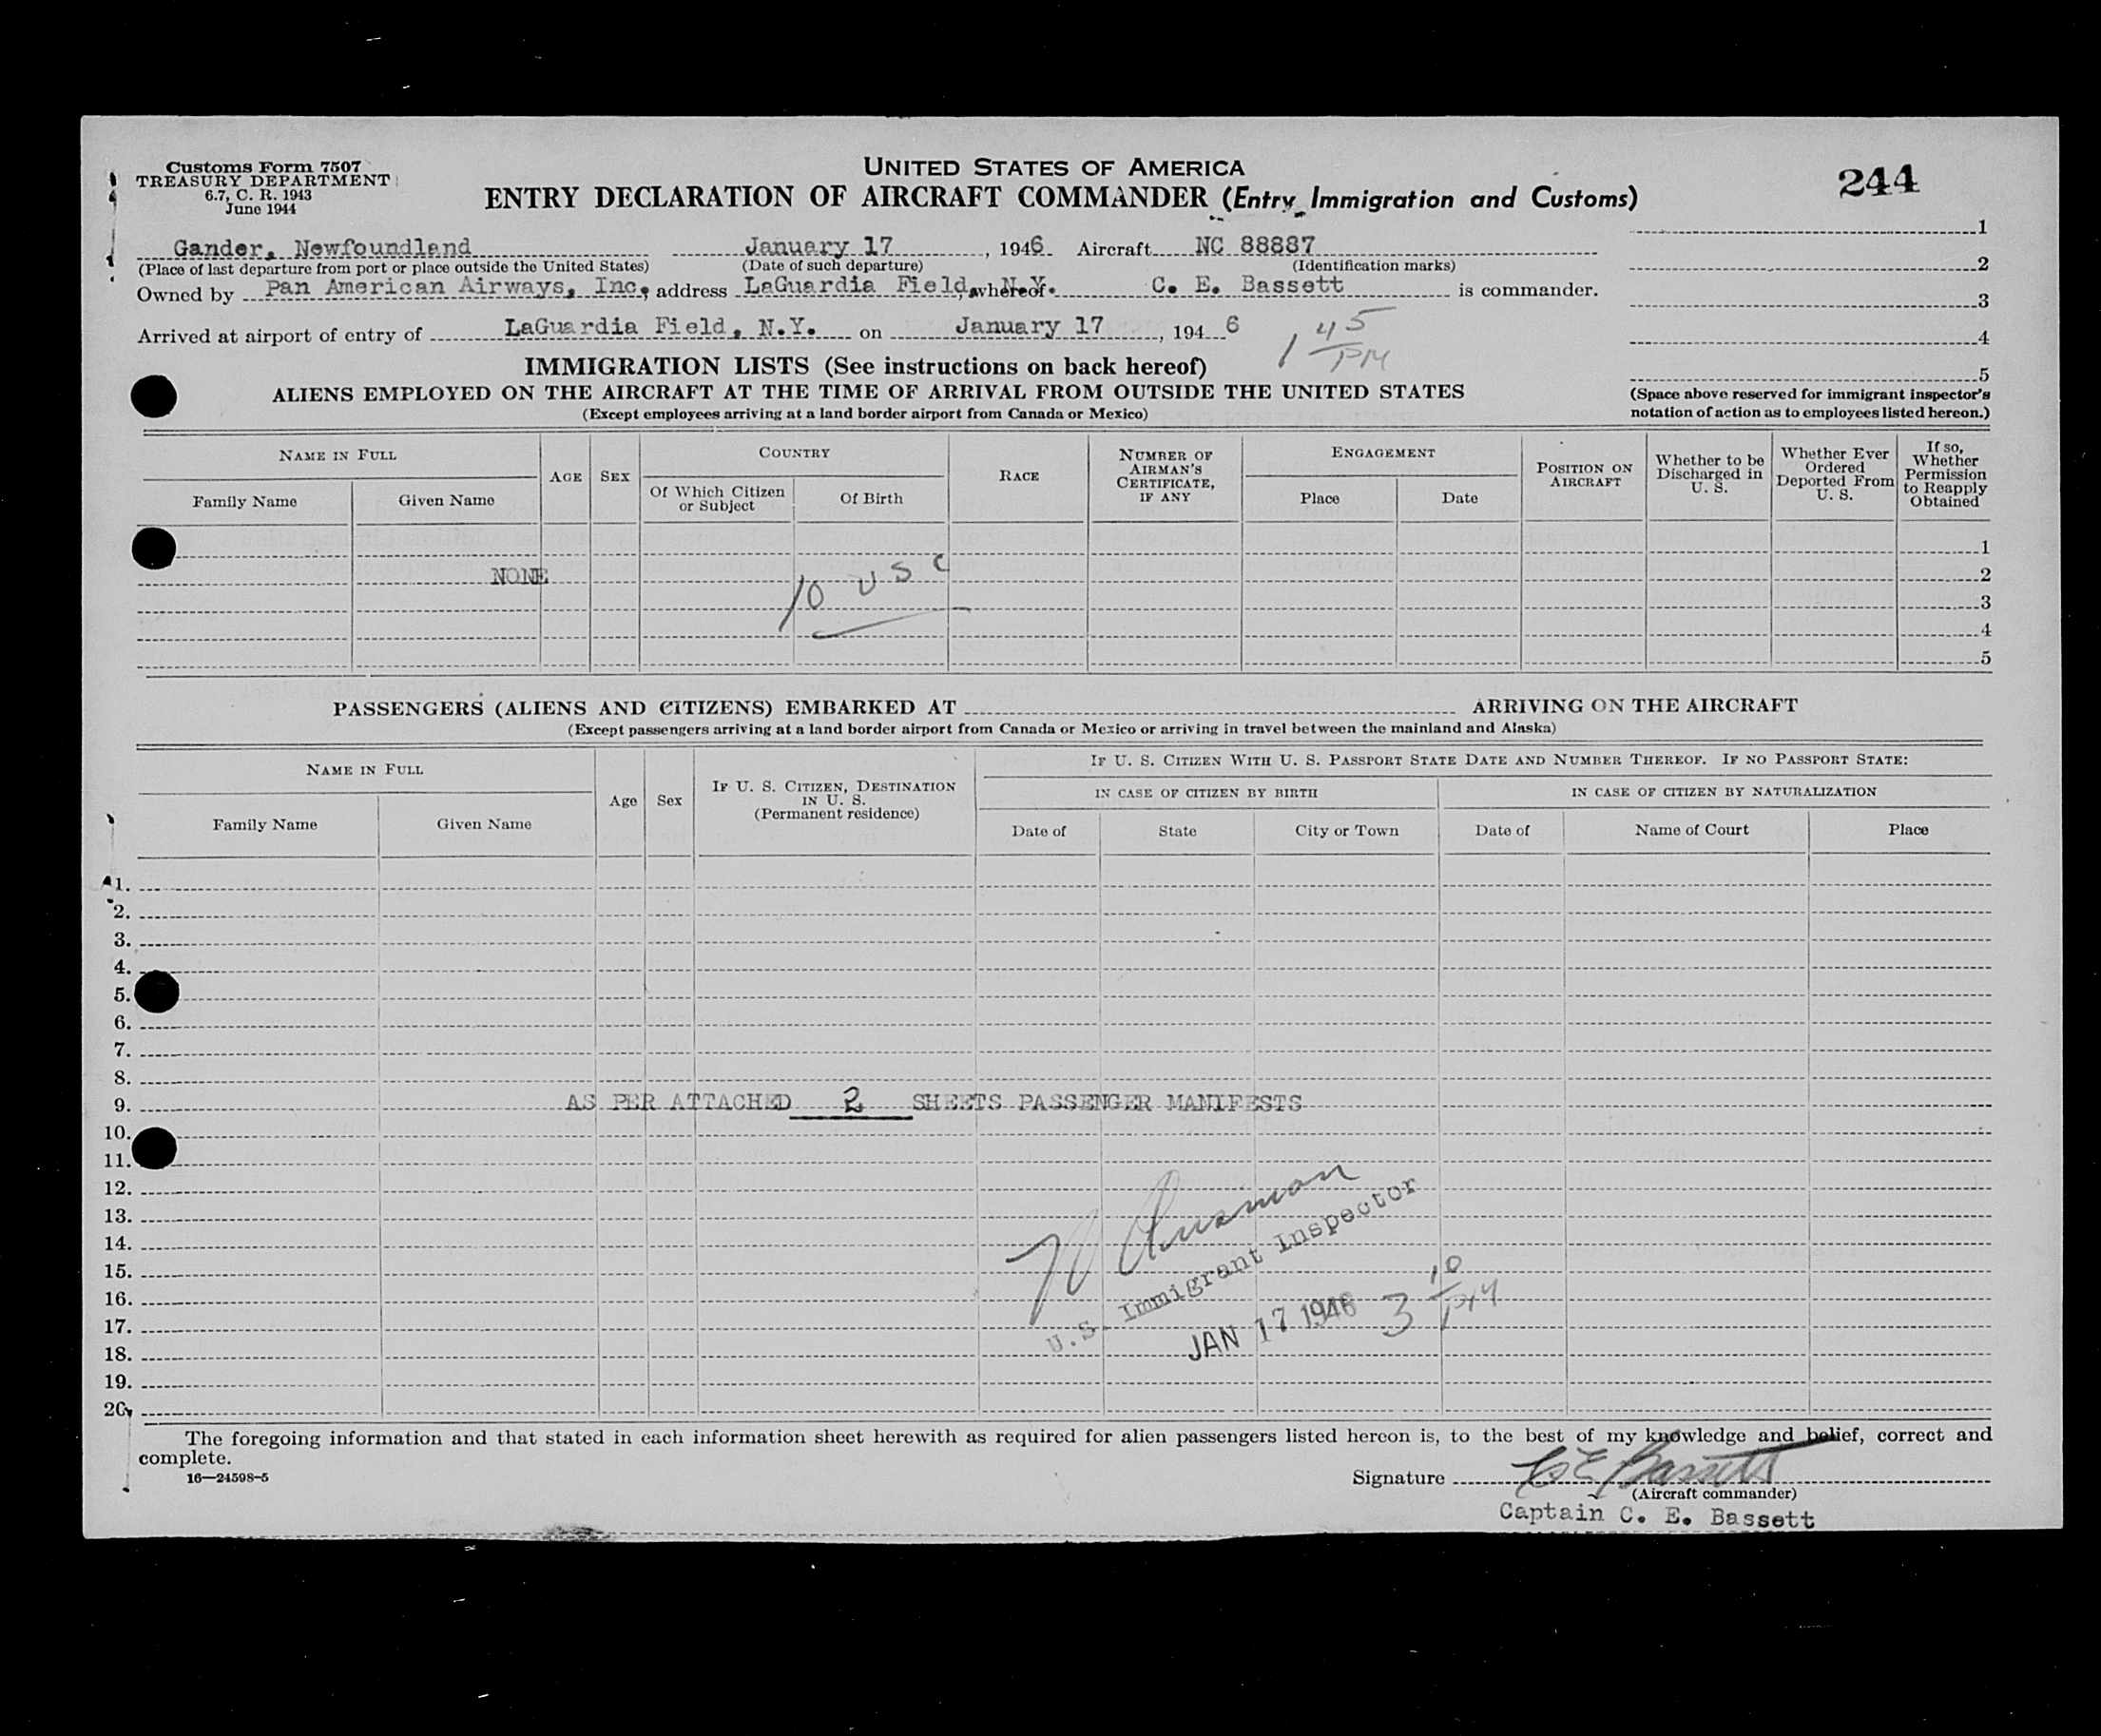 Customs Form 7507
TREASURY DEPARTMENT
6.7, C. R. 1943
June 1944
UNITED STATES OF AMERICA
ENTRY DECLARATION OF AIRCRAFT COMMANDER (Entry Immigration and Customs)
244
Gander, Newfoundland January 17, 1946 Aircraft NC 88887
(Place of last departure from port or place outside the United States) (Date of such departure) (Identification marks)
Owned by Pan American Airways, Inc. address LaGuardia Field, N.Y. whereof C. E. Bassett is commander.
Arrived at airport of entry of LaGuardia Field, N.Y. on January 17, 1946 1 45 PM
1
2
3
4
5
(Space above reserved for immigrant inspector's
notation of action as to employees listed hereon.)
IMMIGRATION LISTS (See instructions on back hereof)
ALIENS EMPLOYED ON THE AIRCRAFT AT THE TIME OF ARRIVAL FROM OUTSIDE THE UNITED STATES
(Except employees arriving at a land border airport from Canada or Mexico)
NAME IN FULL
Family Name Given Name
AGE SEX
COUNTRY
Of Which Citizen or Subject Of Birth
RACE
NUMBER OF AIRMAN'S CERTIFICATE, IF ANY
ENGAGEMENT
Place Date
POSITION ON AIRCRAFT
Whether to be Discharged in U. S.
Whether Ever Ordered Deported From U. S.
If so, Whether Permission to Reapply Obtained
1
NONE 10 USC 2
3
4
5
PASSENGERS (ALIENS AND CITIZENS) EMBARKED AT ARRIVING ON THE AIRCRAFT
(Except passengers arriving at a land border airport from Canada or Mexico or arriving in travel between the mainland and Alaska)
NAME IN FULL
Family Name Given Name
Age Sex
IF U. S. CITIZEN, DESTINATION IN U. S. (Permanent residence)
IF U. S. CITIZEN WITH U. S. PASSPORT STATE DATE AND NUMBER THEREOF. IF NO PASSPORT STATE:
IN CASE OF CITIZEN BY BIRTH IN CASE OF CITIZEN BY NATURALIZATION
Date of State City or Town Date of Name of Court Place
1.
2.
3.
4.
5.
6.
7.
8.
9. AS PER ATTACHED 2 SHEETS PASSENGER MANIFESTS
10.
11.
12.
13.
14.
15.
16.
17.
18.
19.
20.
U.S. Immigrant Inspector
JAN 17 1946 3 10 PM
The foregoing information and that stated in each information sheet herewith as required for alien passengers listed hereon is, to the best of my knowledge and belief, correct and
complete.
16—24598-5
Signature C E Bassett
(Aircraft commander)
Captain C. E. Bassett